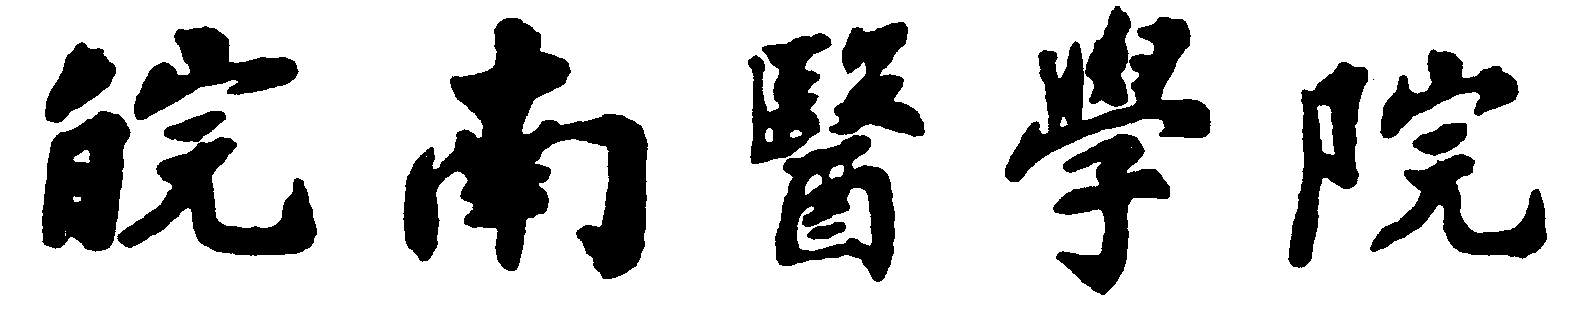 皖南醫學院